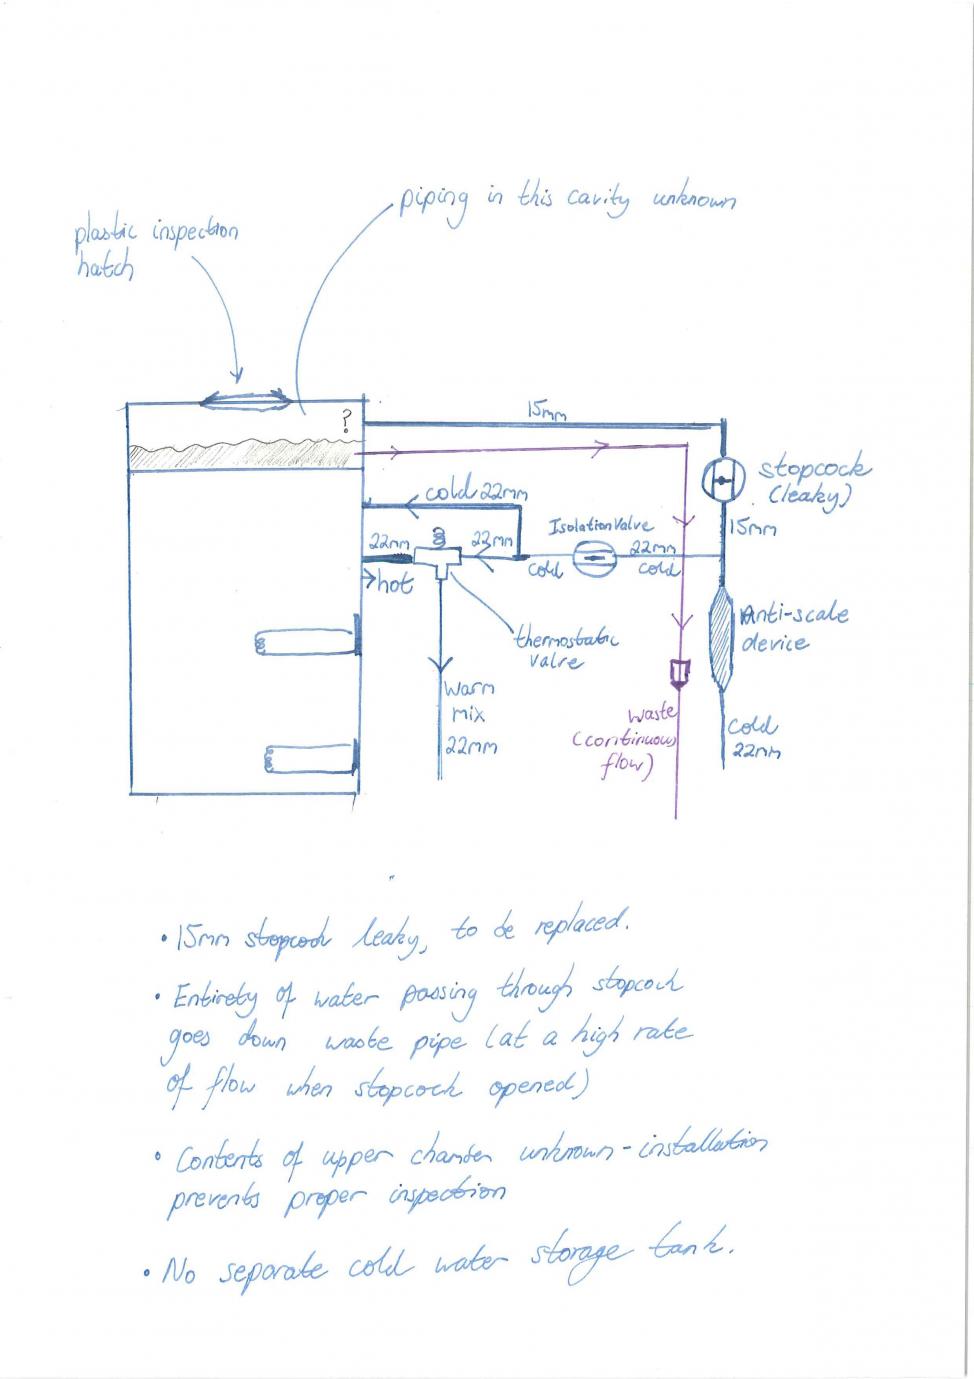 piping in this cavity unknown
plastic inspection
hatch
15mm
?
stopcock
(leaky)
cold 22mm
15mm
Isolation Valve
22mm
22mm
22mm
cold
cold
hot
Anti-scale
device
thermostatic
valve
warm
mix
22mm
waste
(continuous
flow)
cold
22mm
• 15mm stopcock leaky, to be replaced.
• Entirety of water passing through stopcock
goes down waste pipe (at a high rate
of flow when stopcock opened)
• Contents of upper chamber unknown - installation
prevents proper inspection
• No separate cold water storage tank.